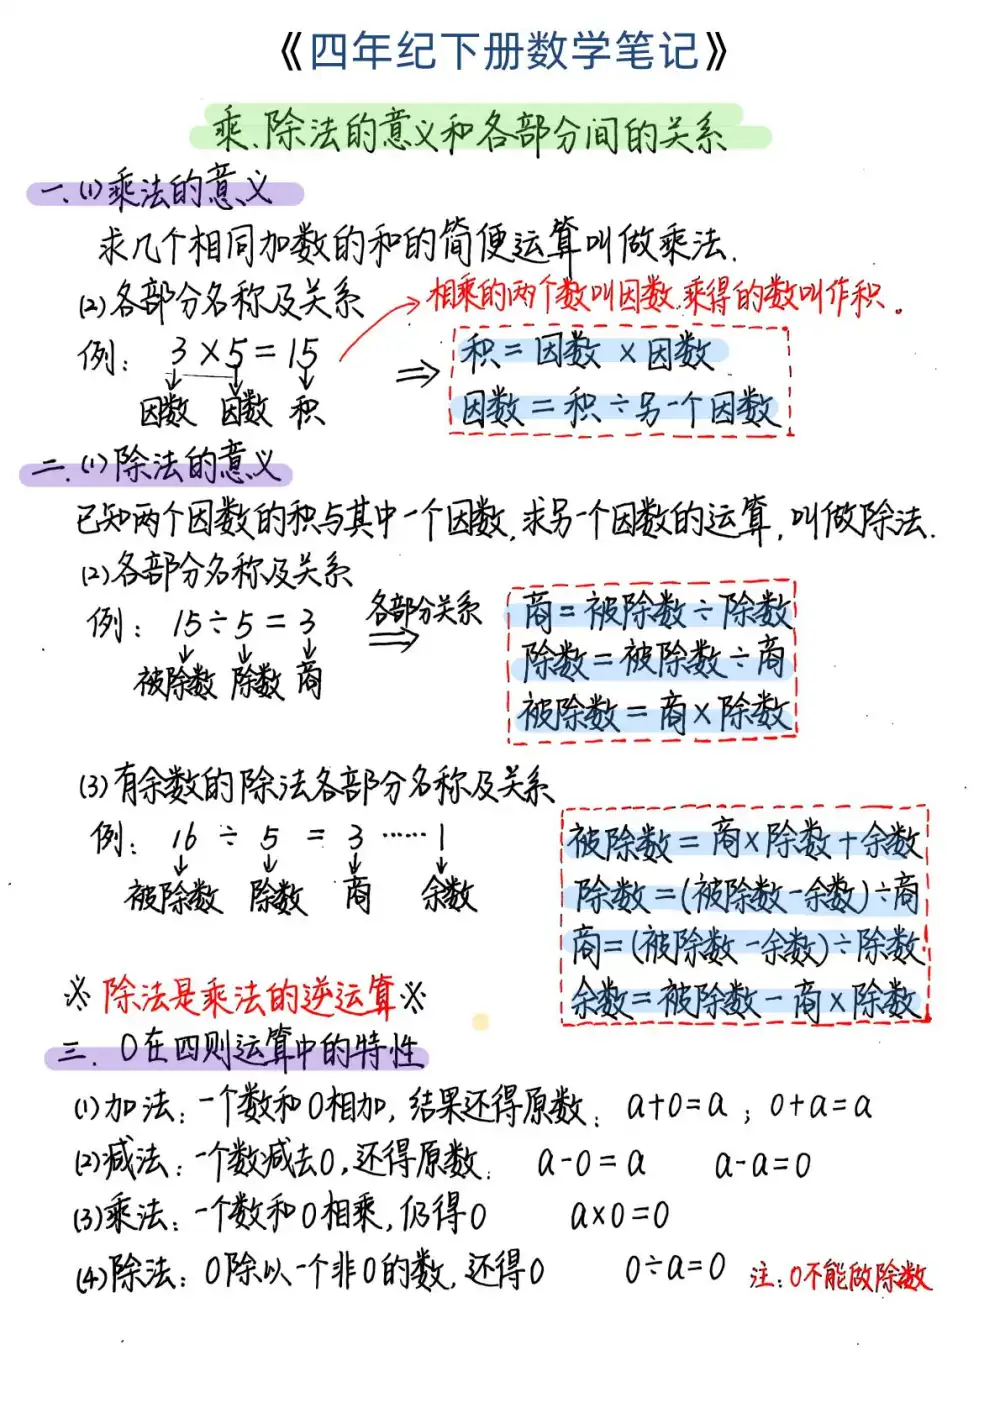 《四年纪下册数学笔记》
乘、除法的意义和各部分间的关系
一.(1)乘法的意义
求几个相同加数的和的简便运算叫做乘法.
(2)各部分名称及关系
相乘的两个数叫因数.乘得的数叫作积。
例: 3×5=15
因数 因数 积
⇒
积=因数×因数
因数=积÷另一个因数
二.(1)除法的意义
已知两个因数的积与其中一个因数,求另一个因数的运算,叫做除法.
(2)各部分名称及关系
例: 15÷5=3
被除数 除数 商
各部分关系
⇒
商=被除数÷除数
除数=被除数÷商
被除数=商×除数
(3)有余数的除法各部分名称及关系
例: 16÷5=3……1
被除数 除数 商 余数
被除数=商×除数+余数
除数=(被除数-余数)÷商
商=(被除数-余数)÷除数
余数=被除数-商×除数
※除法是乘法的逆运算※
三. 0在四则运算中的特性
(1)加法: 一个数和0相加, 结果还得原数: a+0=a ; 0+a=a
(2)减法: 一个数减去0,还得原数: a-0=a a-a=0
(3)乘法: 一个数和0相乘,仍得0 a×0=0
(4)除法: 0除以一个非0的数,还得0 0÷a=0 注:0不能做除数